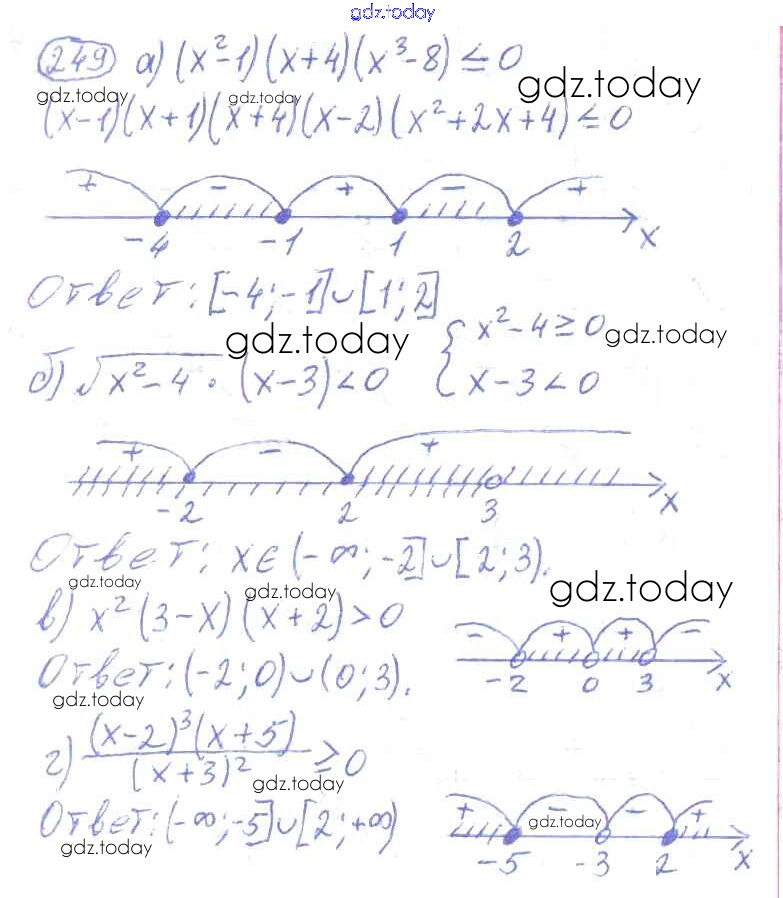 gdz.today
249 а) (x²-1)(x+4)(x³-8) ≤ 0
gdz.today gdz.today gdz.today
(x-1)(x+1)(x+4)(x-2)(x²+2x+4) ≤ 0
+ - + - +
-4 -1 1 2 x
Ответ: [-4;-1]∪[1;2]
gdz.today { x²-4≥0 gdz.today
б) √x²-4 · (x-3)<0 x-3<0
+ - +
-2 2 3 x
Ответ: x∈(-∞;-2]∪[2;3).
gdz.today gdz.today gdz.today
в) x²(3-x)(x+2)>0
- + + -
-2 0 3 x
Ответ: (-2;0)∪(0;3).
gdz.today
г) (x-2)³(x+5)
(x+3)² ≥0
gdz.today
+ - - +
gdz.today
-5 -3 2 x
Ответ: (-∞;-5]∪[2;+∞)
gdz.today